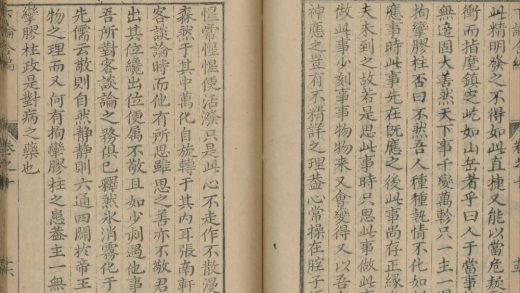 此精明發之不得如此直捷又能以當危疑
衝而指麾鎮定屹如山岳者乎曰人于當事
無適固大善然天下事千變萬軫只一主一
拘攣膠柱否曰不然吾人種種執情不化如
應事時此事先在旣應之後此事尚存正緣
夫未到之故若是思此事時只思此事做此
做此事少刻事事物物來又會變得又以吾
神應之豈有不精詳之理葢心常操在腔子
惺常惺惺便活潑只是此心不走作不散漫
森然于其中萬化自旋轉于其內耳張南軒
客談論時而他有所思雖思之善亦不敬君
出其位纔出位便属不敬且如少刻過他事
吾所對客談論之務俱已釋然氷消霧化于
先儒云敬則自然静静則六通四闢於帝王
物之理而又何有拘攣膠柱之患葢主一無
攣膠柱政是對病之藥也